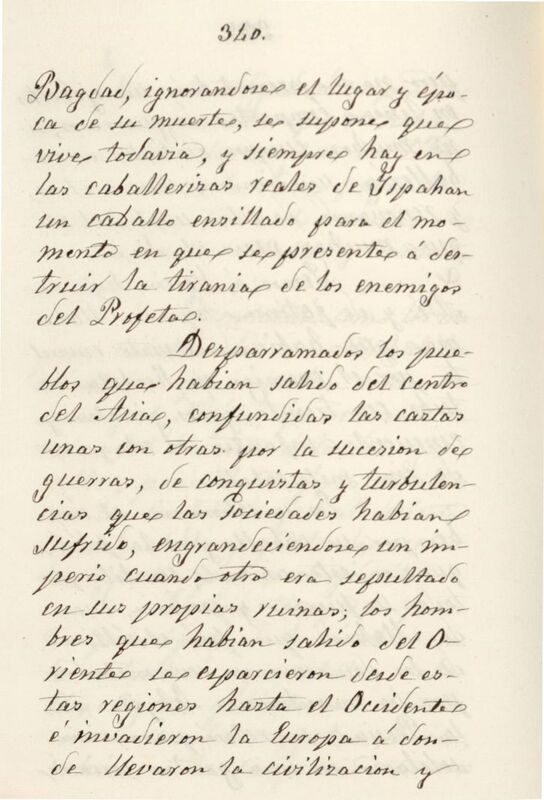 340.
Bagdad, ignorandose el lugar y épo-
ca de su muerte, se supone que
vive todavia, y siempre hay en
las caballerizas reales de Ispahan
un caballo ensillado para el mo-
mento en que se presente á des-
truir la tirania de los enemigos
del Profeta.
Desparramados los pue-
blos que habian salido del centro
del Asia, confundidas las castas
unas con otras por la sucesion de
guerras, de conquistas y turbulen-
cias que las Sociedades habian
sufrido, engrandeciendose un im-
perio cuando otro era sepultado
en sus propias ruinas; los hom-
bres que habian salido del O-
riente se esparcieron desde es-
tas regiones hasta el Occidente
é invadieron la Europa á don-
de llevaron la civilizacion y